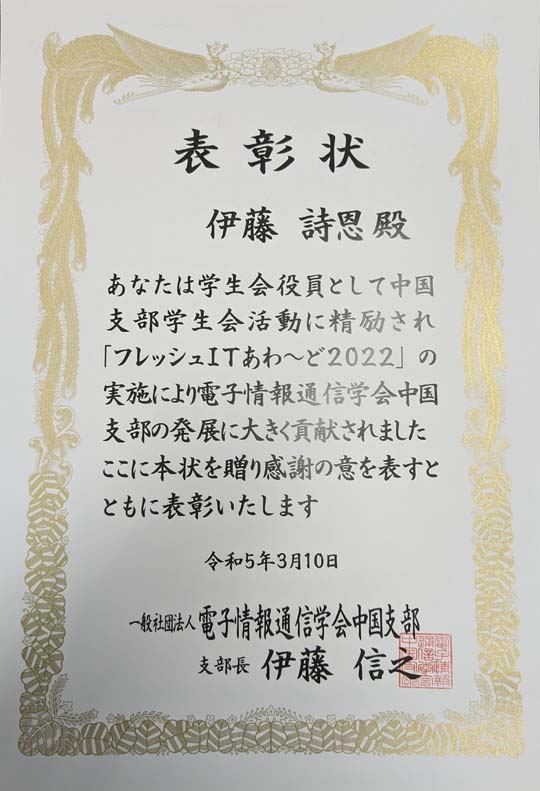 表彰状
伊藤 詩恩 殿
あなたは学生会役員として中国
支部学生会活動に精励され
「フレッシュITあわ～ど2022」の
実施により電子情報通信学会中国
支部の発展に大きく貢献されました
ここに本状を贈り感謝の意を表すと
ともに表彰いたします
令和5年3月10日
一般社団法人 電子情報通信学会中国支部
支部長 伊藤 信之